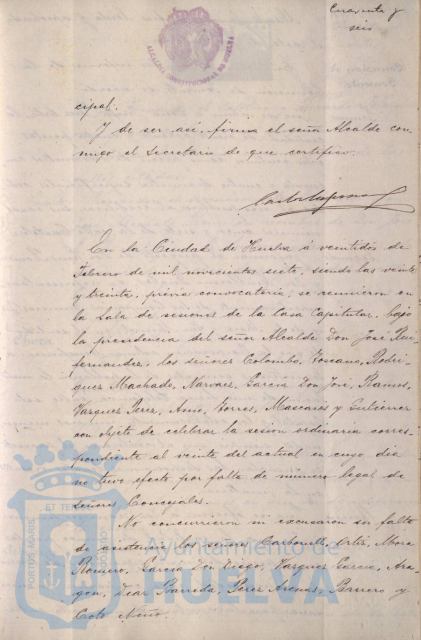 Cuarenta y
seis
ALCALDIA CONSTITUCIONAL DE HUELVA
cipal.
Y de ser asi, firma el señor Alcalde con-
migo el Secretario de que certifico.
En la Ciudad de Huelva á veintidos de
Febrero de mil novecientos siete, siendo las veinte
y treinta, prévia convocatoria, se reunieron en
la Sala de sesiones de la Casa Capitular, bajo
la presidencia del señor Alcalde Don José Ruiz
Fernandez, los señores Colombo, Toscano, Rodri-
guez Machado, Narvaez, Garcia Don José, Ramos,
Vazquez Perez, Amo, Torres, Mascarós y Gutierrez
con objeto de celebrar la sesion ordinaria corres-
pondiente al veinte del actual en cuyo dia
no tuvo efecto por falta de número legal de
señores Concejales.
No concurrieron ni excusaron su falta
de asistencia los señores Carbonell, Ortiz, Mora
Romero, Garcia Don Diego, Vazquez Garcia, Ara-
gon, Diaz Barreda, Perez Arenas, Barrero y
Coto Niño.
PORTUS MARIS ET TERRAE CUSTODIA
Ayuntamiento de
HUELVA